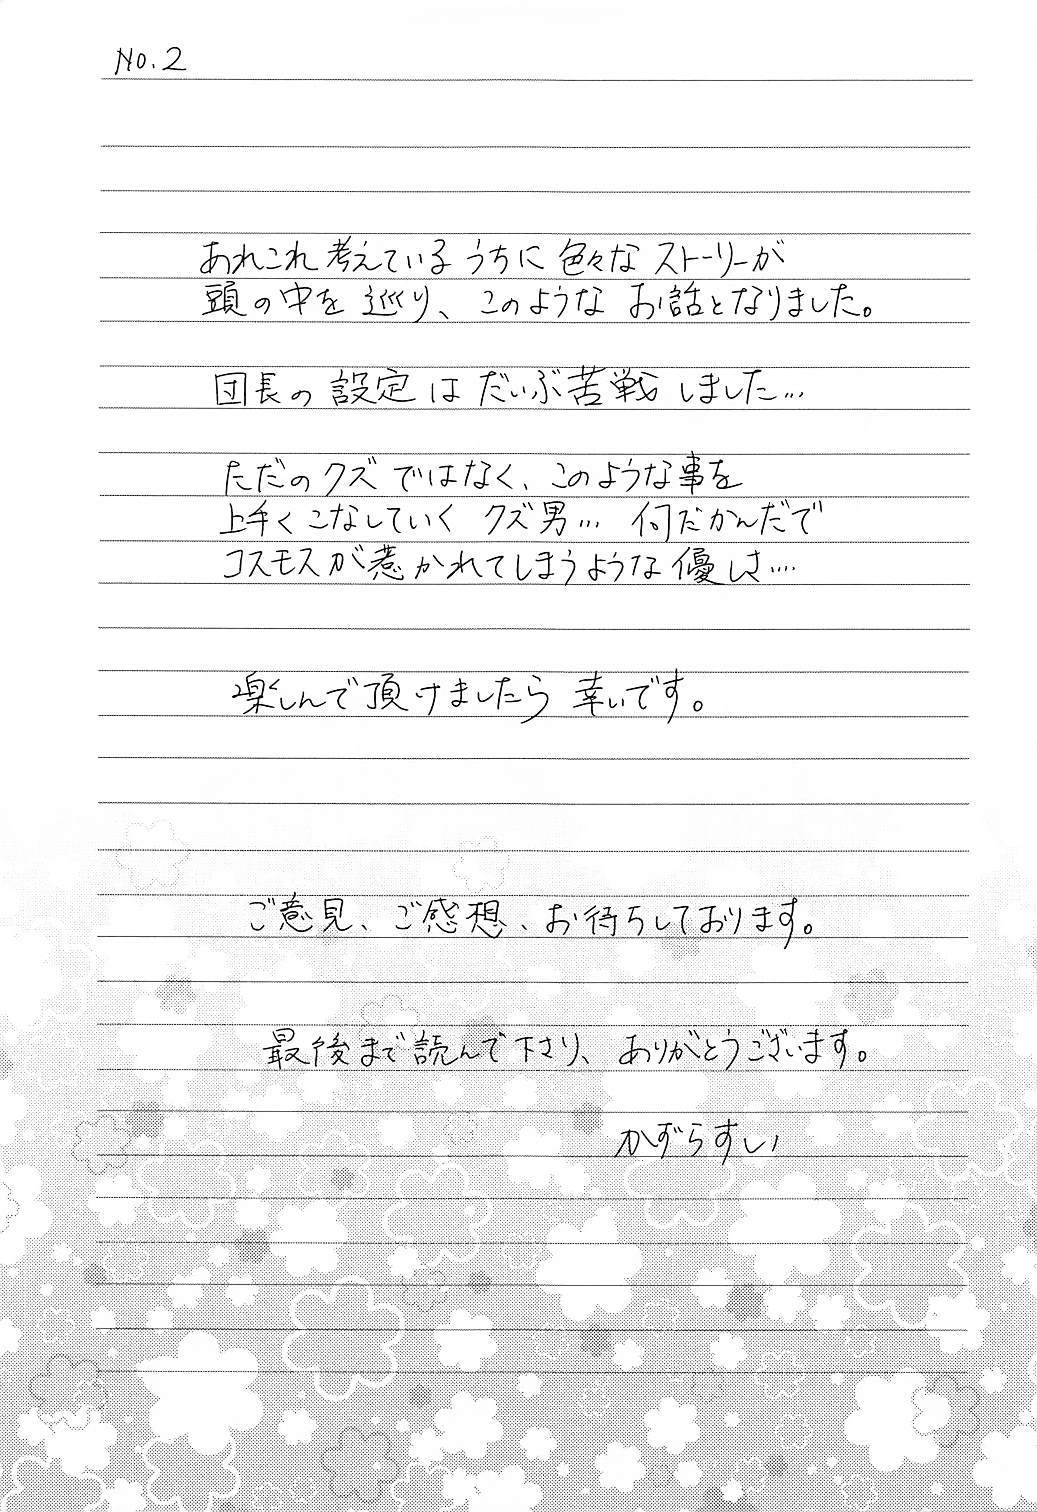 No.2
あれこれ考えているうちに色々なストーリーが
頭の中を巡り、このようなお話となりました。
団長の設定はだいぶ苦戦しました…
ただのクズではなく、このような事を
上手くこなしていくクズ男… 何だかんだで
コスモスが惹かれてしまうような優しさ…
楽しんで頂けましたら幸いです。
ご意見、ご感想、お待ちしております。
最後まで読んで下さり、ありがとうございます。
かずらすい